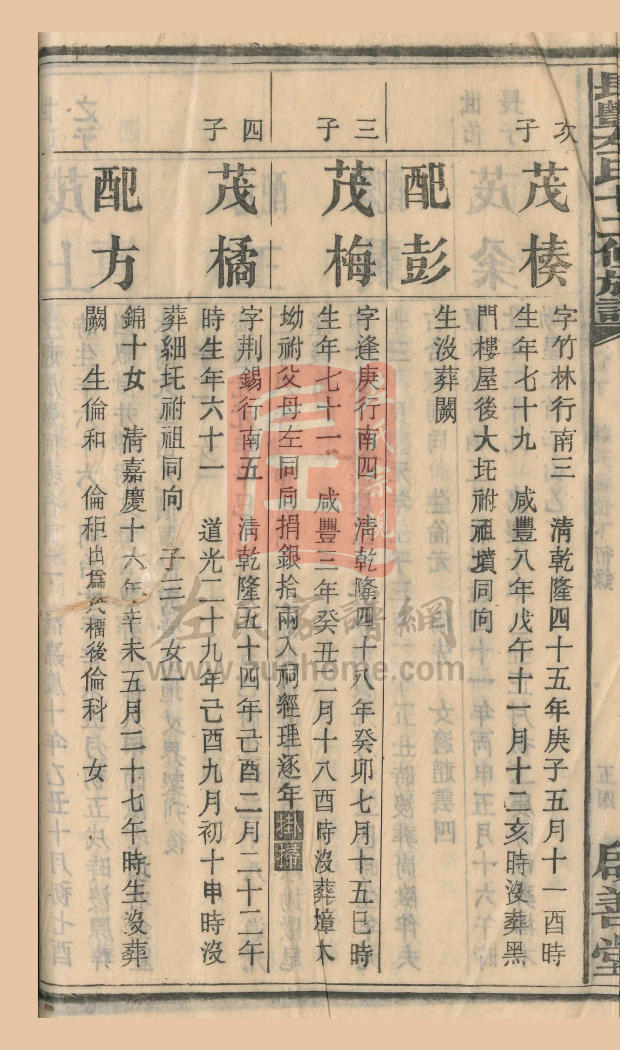 次子
茂棲
字竹林行南三 清乾隆四十五年庚子五月十一酉時
生年七十九 咸豐八年戊午十一月十二亥時沒葬黑
門樓屋後大圫祔祖墳同向
配彭
生沒葬闕
三子
茂梅
字逢庚行南四 清乾隆四十八年癸卯七月十五巳時
生年七十一 咸豐三年癸丑二月十八酉時沒葬墇木
坳祔父母左同向捐銀拾兩入祠經理逐年掛掃
四子
茂橘
字荆錫行南五 清乾隆五十四年己酉二月二十二午
時生年六十一 道光二十九年己酉九月初十申時沒
葬細圫祔祖同向 子三 女一
配方
錦十女 清嘉慶十六年辛未五月二十七午時生沒葬
闕 生倫和 倫秬出爲茂檽後倫科 女
啟善堂
左氏家譜網
www.zuohome.com